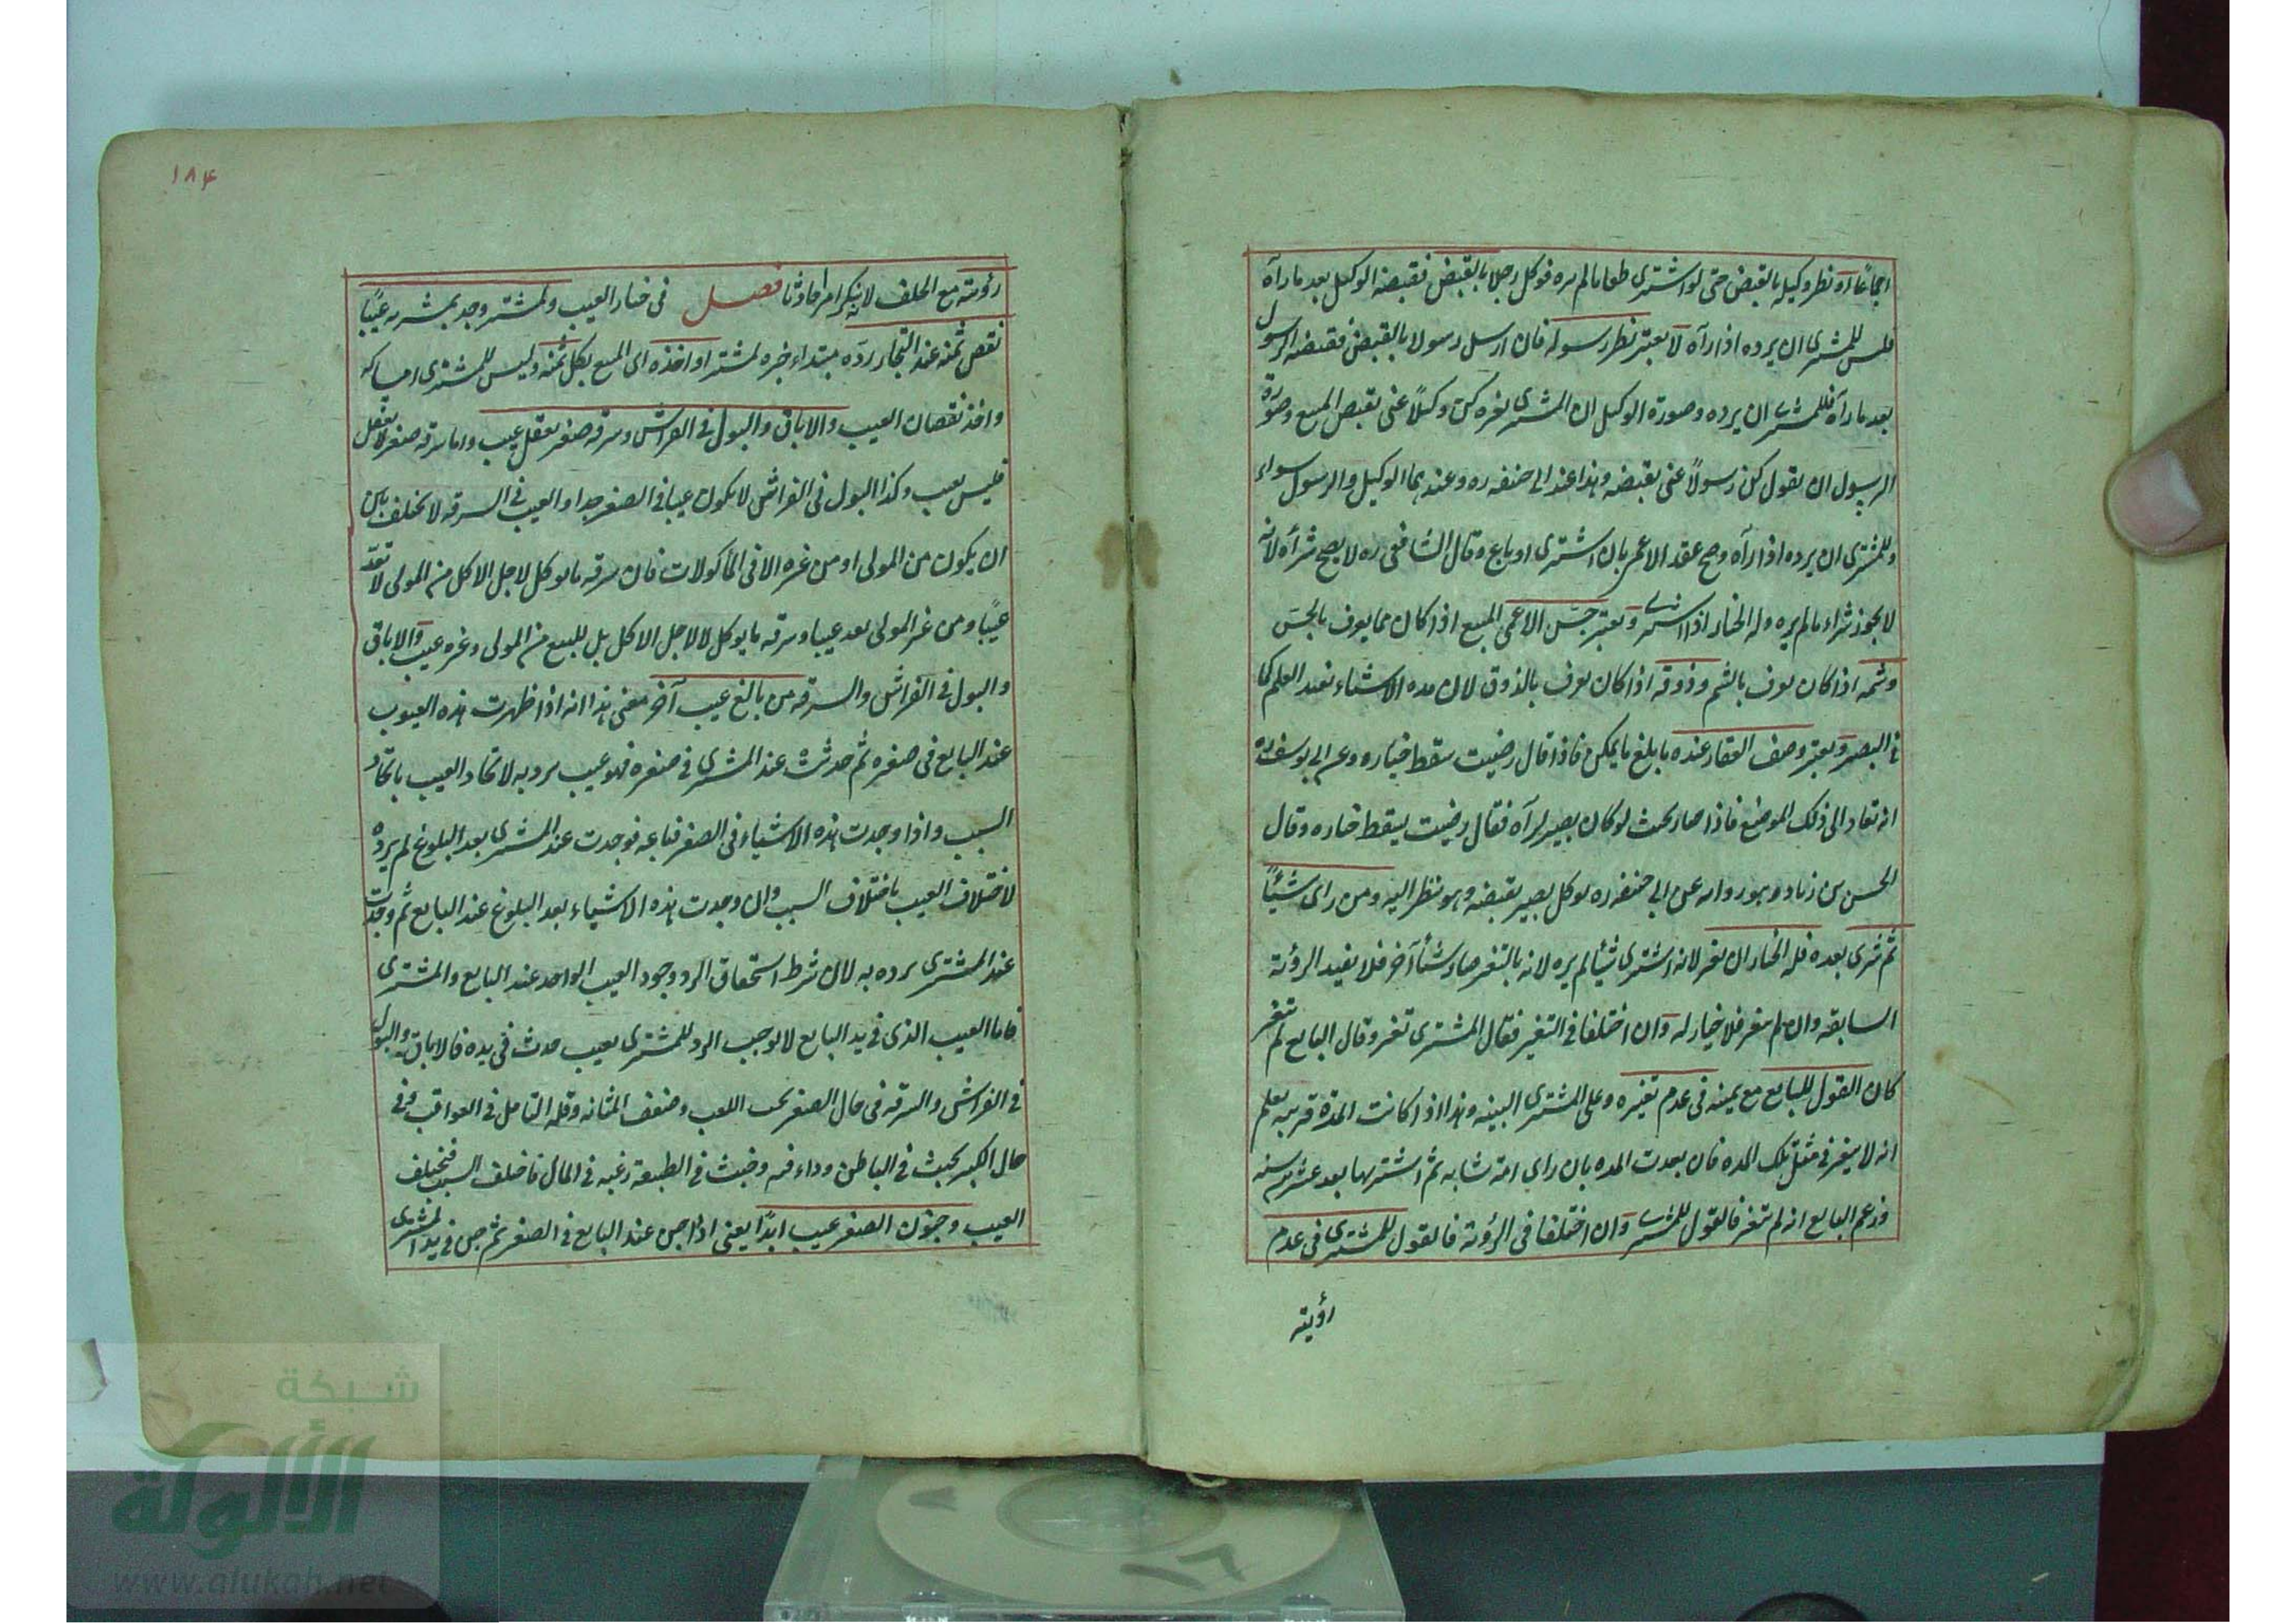 اجماعًا او نظر وكيله بالقبض حتى لو اشترى طعاما لم يره فوكل رجلا بالقبض فقبضه الوكيل بعد ما رآه
فليس للمشترى ان يرده اذا رآه لا يعتبر نظر رسوله فان ارسل رسولا بالقبض فقبضه الرسول
بعد ما رآه فللمشترى ان يرده وصورة الوكيل ان المشترى لغيره كن وكيلاً عنى بقبض المبيع وصورة
الرسول ان يقول كن رسولاً عنى بقبضه وهذا عند ابى حنيفه ره وعندهما الوكيل والرسول سواء
وللمشترى ان يرده اذا رآه وصح عقد الاعمى بان اشترى او باع وقال الشافعى ره لا يصح شرآه لانه
لا يجوز شراء ما لم يره وله الخيار اذا اشترى ويعتبر جسّ الاعمى المبيع اذا كان مما يعرف بالجسّ
وشمه اذا كان يعرف بالشم وذوقه اذا كان يعرف بالذوق لان هذه الاشياء تفيد العلم كما
فى البصير ويعتبر وصف العقار عنده بابلغ ما يمكن فاذا قال رضيت سقط خياره وعن ابى يوسف ره
انه يقاد الى ذلك الموضع فاذا صار بحيث لو كان بصيرا لرآه فقال رضيت يسقط خياره وقال
الحسن بن زياد وهو رواية عن ابى حنيفه ره يوكل بصير يقبضه وهو ينظر اليه ومن راى شيئًا
ثم شرى بعده فله الخيار ان تغير لانه اشترى شيئا لم يره لانه بالتغير صار شيئا آخر فلا يفيد الرؤية
السابقه وان لم يتغير فلا خيار له وان اختلفا فى التغير فقال المشترى تغير وقال البايع لم يتغير
كان القول للبايع مع يمينه فى عدم تغيره وعلى المشترى البينه وهذا اذا كانت المدة قريبه يعلم
انه لا يتغير فى مثل تلك المده فان بعدت المده بان راى امة شابه ثم اشتريها بعد عشرين سنه
وزعم البايع انه لم يتغير فالقول للمشترى وان اختلفا فى الرؤية فالقول للمشترى فى عدم
رؤيته
١٨٤
رؤيته مع الحلف لانه ينكر امرا حادثا فصل فى خيار العيب ولمشتر وجد بمشريه عيبًا
نقص ثمنه عند التجار ردّه مبتداء خبره لمشتر او اخذه اى المبيع بكل ثمنه وليس للمشترى امساكه
واخذ نقصان العيب والاباق والبول فى الفراش وسرقه صغير يعقل عيب واما سرقه صغير لا يعقل
فليس بعيب وكذا البول فى الفراش لا يكون عيبا فى الصغير جدا والعيب فى السرقه لا يختلف بان
ان يكون من المولى او من غيره الا فى المأكولات فان سرقه ما يوكل لاجل الاكل من المولى لا تعدّ
عيبًا ومن غير المولى يعد عيبا وسرقه ما يوكل لا لاجل الاكل بل للبيع من المولى وغيره عيب والاباق
والبول فى الفراش والسرقه من بالغ عيب آخر معنى هذا انه اذا ظهرت هذه العيوب
عند البايع فى صغره ثم حدثت عند المشترى فى صغره فهو عيب يرد به لاتحاد العيب باتحاد
السبب واذا وجدت هذه الاشياء فى الصغر فباعه فوجدت عند المشترى بعد البلوغ لم يرده
لاختلاف العيب باختلاف السبب وان وجدت هذه الاشياء بعد البلوغ عند البايع ثم وجدت
عند المشترى يرده به لان شرط استحقاق الرد وجود العيب الواحد عند البايع والمشترى
فاما العيب الذى فى يد البايع لا يوجب الرد للمشترى بعيب حدث فى يده فالاباق والبول
فى الفراش والسرقه فى حال الصغر لحب اللعب وضعف المثانه وقله التامل فى العواقب وفى
حال الكبر لخبث فى الباطن وداء فيه وخبث فى الطبيعة رغبه فى المال فاختلف السبب فيختلف
العيب وجنون الصغير عيب ابدًا يعنى اذا جن عند البايع فى الصغر ثم جن فى يد المشترى
شبكة
الألوكة
www.alukah.net